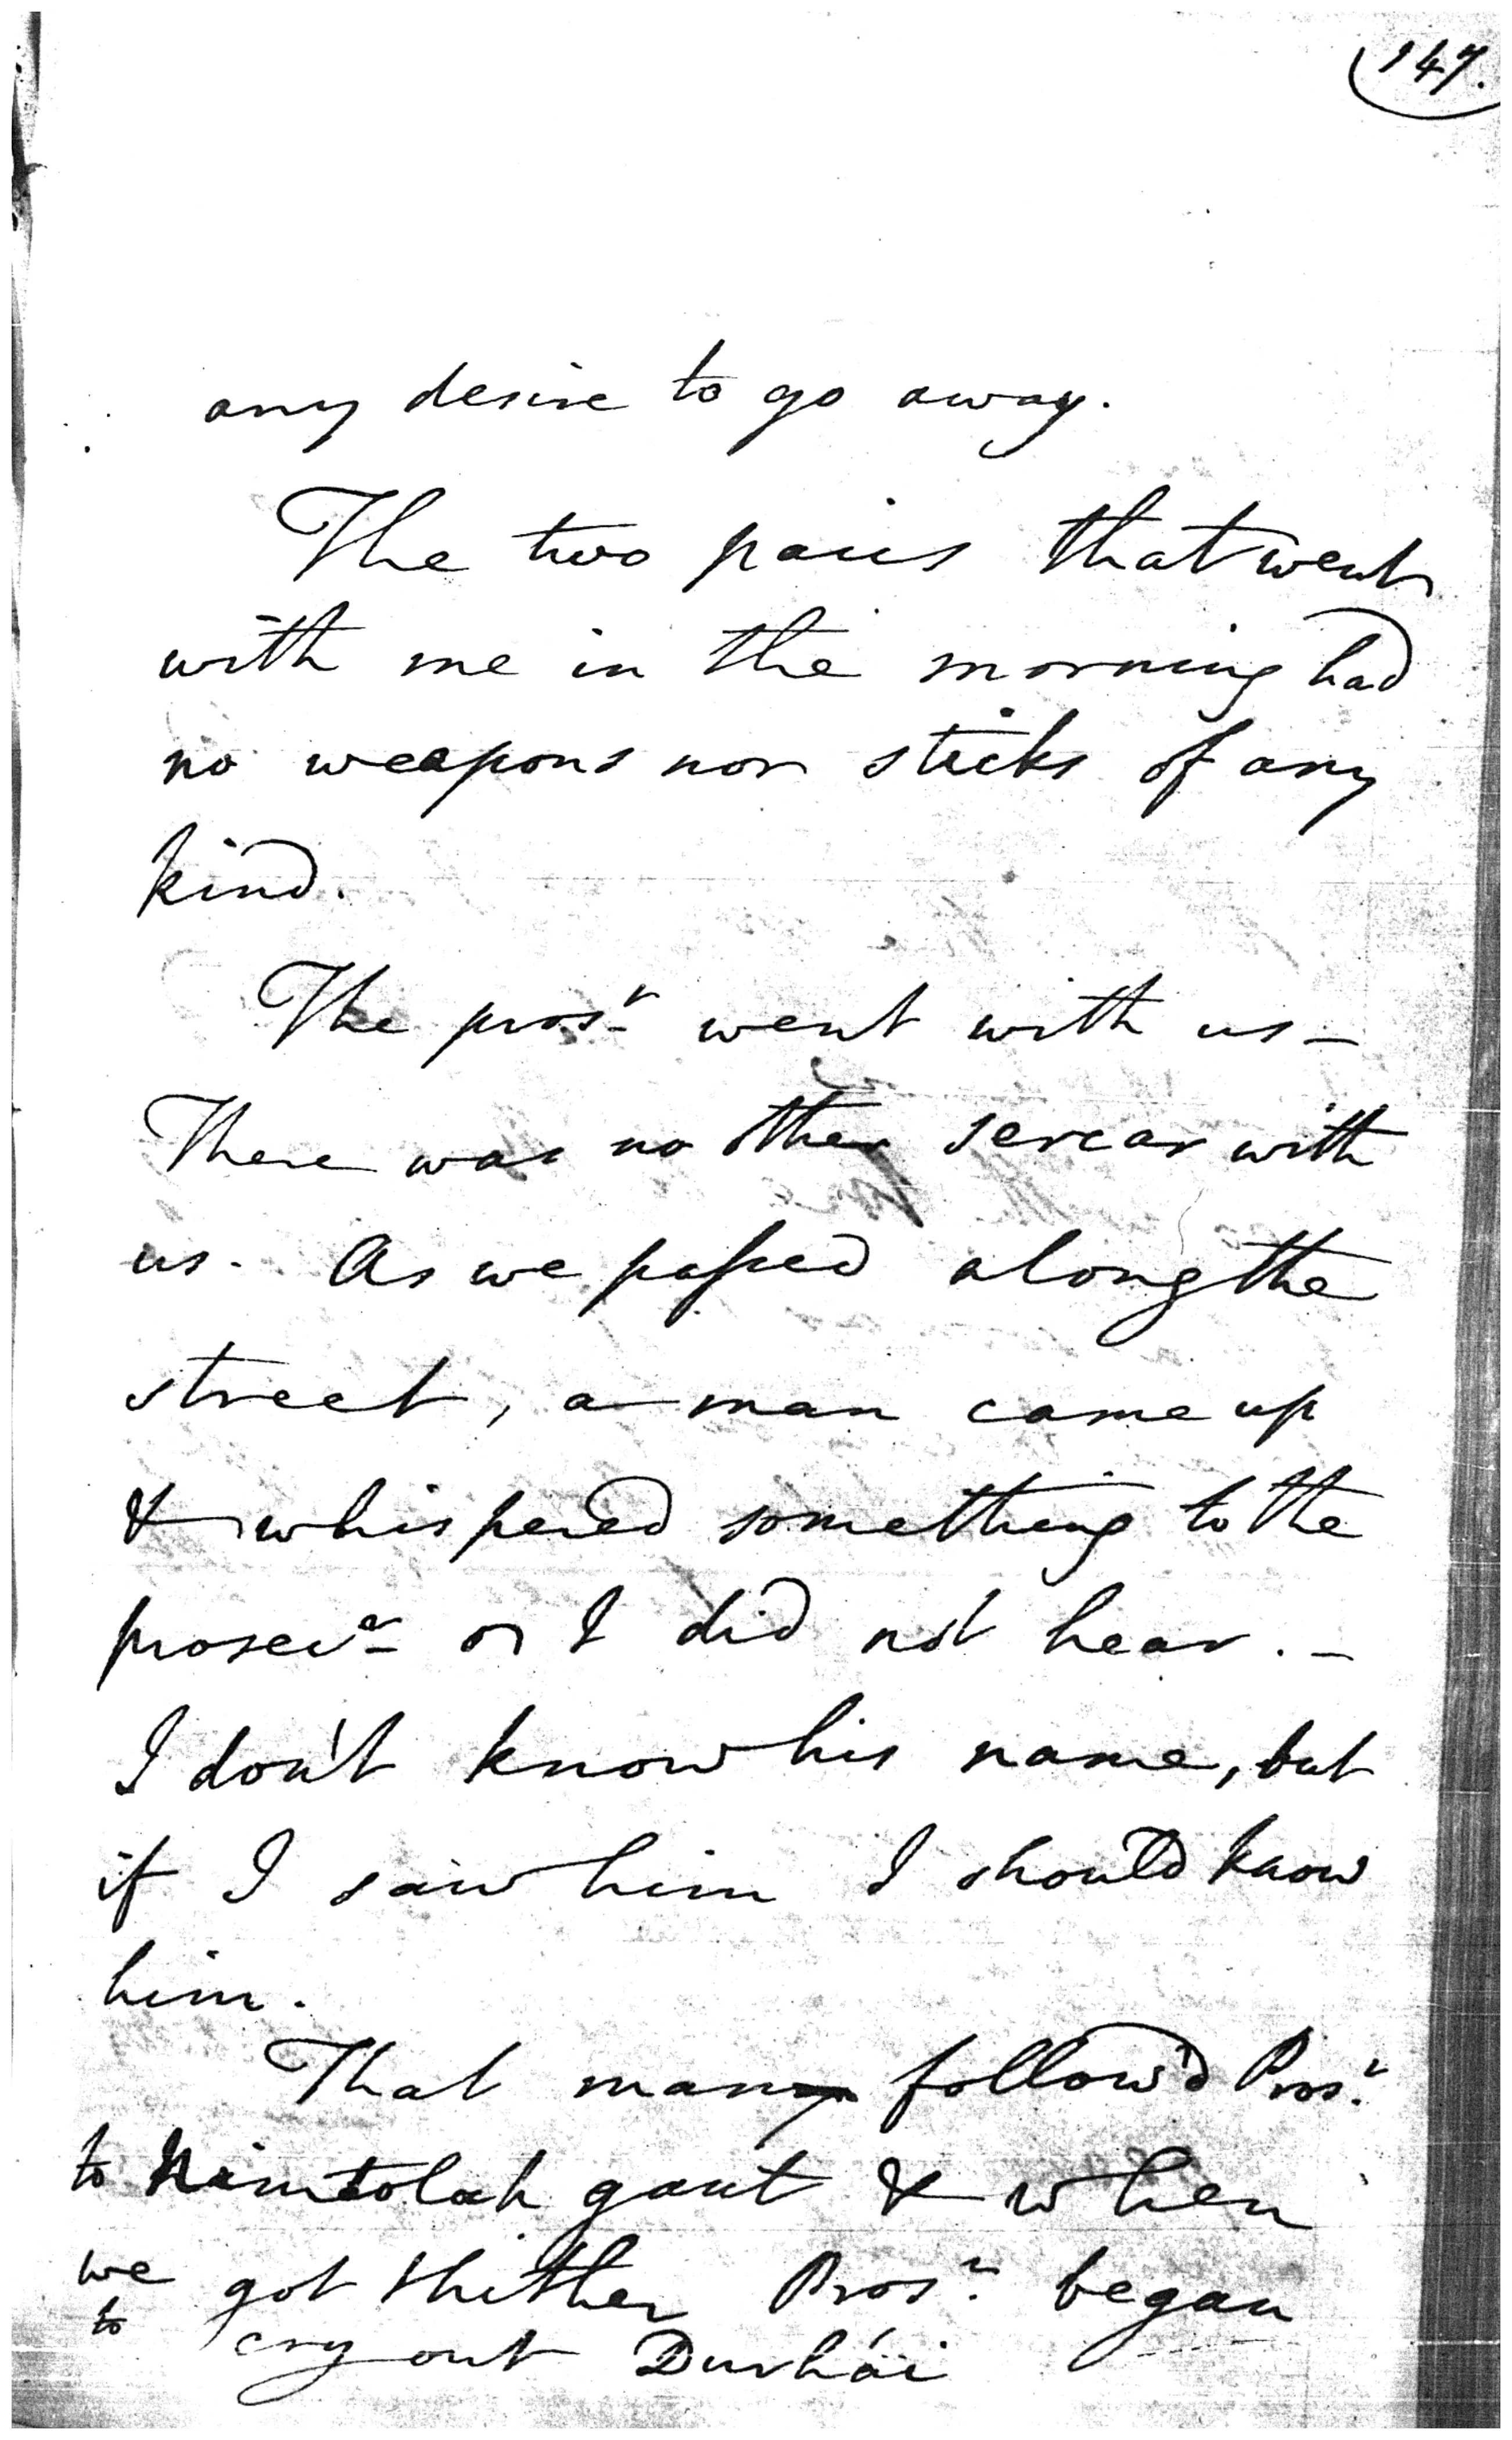 147.
any desire to go away.
The two pairs that went
with me in the morning had
no weapons nor sticks of any
kind.
The prosr went with us —
There was no other sercar with
us. As we passed along the
street, a man came up
& whispered something to the
prosecr I did not hear. —
I don't know his name, but
if I saw him I should know
him.
That man follow'd Prosr
to Nimtolah gaut & when
we got thither Prosr began
to cry out Durhái